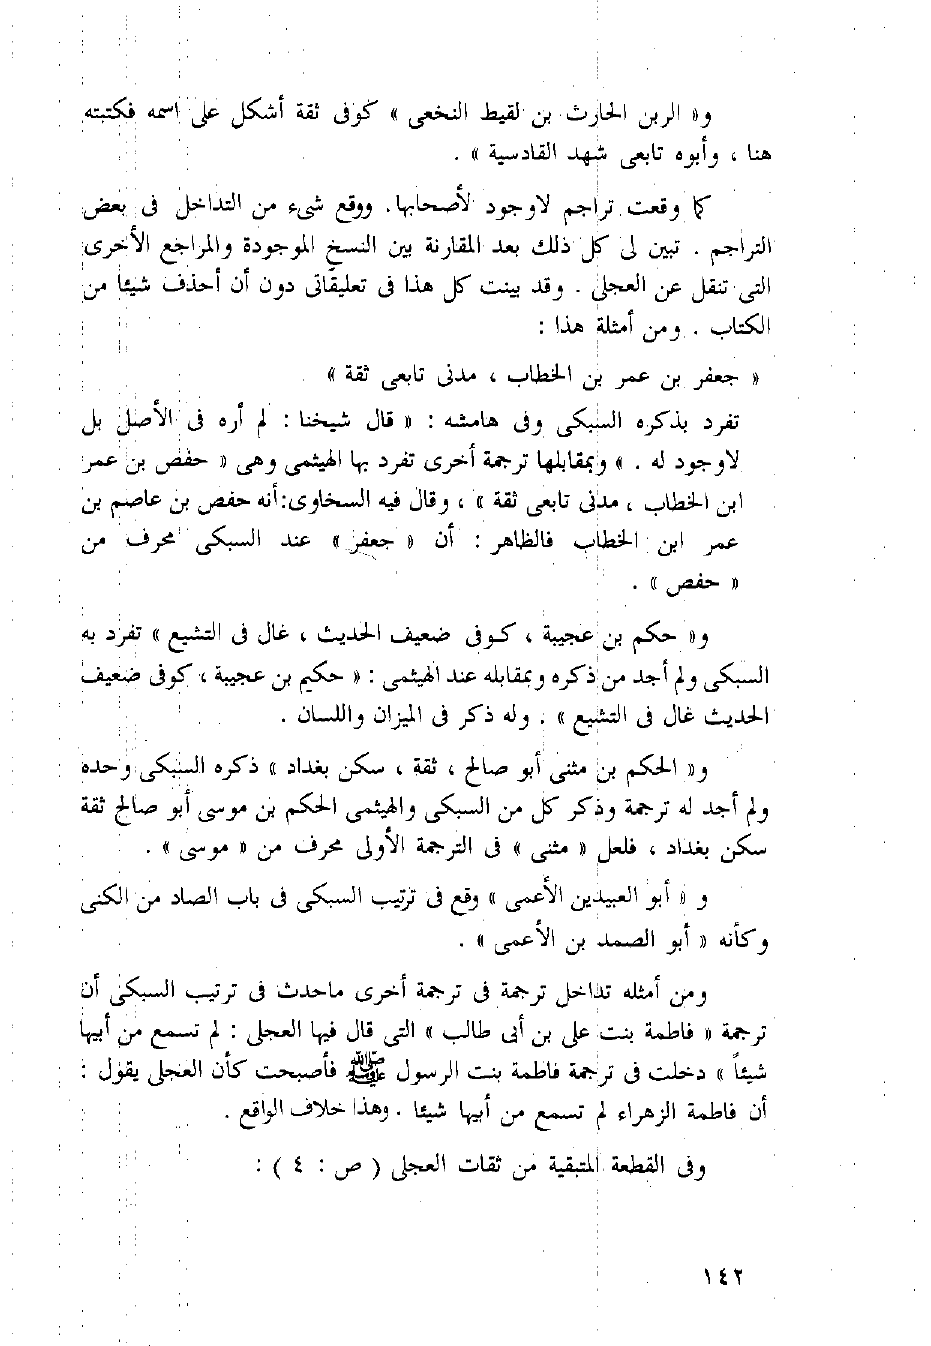 و« الربن الحارث بن لقيط النخعى » كوفى ثقة أشكل على اسمه فكتبته
هنا ، وأبوه تابعى شهد القادسية » .
كما وقعت تراجم لاوجود لأصحابها. ووقع شىء من التداخل فى بعض
التراجم . تبين لى كل ذلك بعد المقارنة بين النسخ الموجودة والمراجع الأخرى
التى تنقل عن العجلى . وقد بينت كل هذا فى تعليقاتى دون أن أحذف شيئا من
الكتاب . ومن أمثلة هذا :
« جعفر بن عمر بن الخطاب ، مدنى تابعى ثقة »
تفرد بذكره السبكى وفى هامشه : « قال شيخنا : لم أره فى الأصل بل
لاوجود له . » وبمقابلها ترجمة أخرى تفرد بها الهيثمى وهى « حفص بن عمر
ابن الخطاب ، مدنى تابعى ثقة » ، وقال فيه السخاوى: أنه حفص بن عاصم بن
عمر ابن الخطاب فالظاهر : أن « جعفر » عند السبكى محرف من
« حفص » .
و« حكم بن عجيبة ، كوفى ضعيف الحديث ، غال فى التشيع » تفرد به
السبكى ولم أجد من ذكره وبمقابله عند الهيثمى : « حكيم بن عجيبة ، كوفى ضعيف
الحديث غال فى التشيع » . وله ذكر فى الميزان واللسان .
و« الحكم بن مثنى أبو صالح ، ثقة ، سكن بغداد » ذكره السبكى وحده
ولم أجد له ترجمة وذكر كل من السبكى والهيثمى الحكم بن موسى أبو صالح ثقة
سكن بغداد ، فلعل « مثنى » فى الترجمة الأولى محرف من « موسى » .
و « أبو العبيدين الأعمى » وقع فى ترتيب السبكى فى باب الصاد من الكنى
وكأنه « أبو الصمد بن الأعمى » .
ومن أمثله تداخل ترجمة فى ترجمة أخرى ماحدث فى ترتيب السبكى أن
ترجمة « فاطمة بنت على بن أبى طالب » التى قال فيها العجلى : لم تسمع من أبيها
شيئاً » دخلت فى ترجمة فاطمة بنت الرسول ﷺ فأصبحت كأن العجلى يقول :
أن فاطمة الزهراء لم تسمع من أبيها شيئا . وهذا خلاف الواقع .
وفى القطعة المتبقية من ثقات العجلى ( ص : ٤ ) :
١٤٢